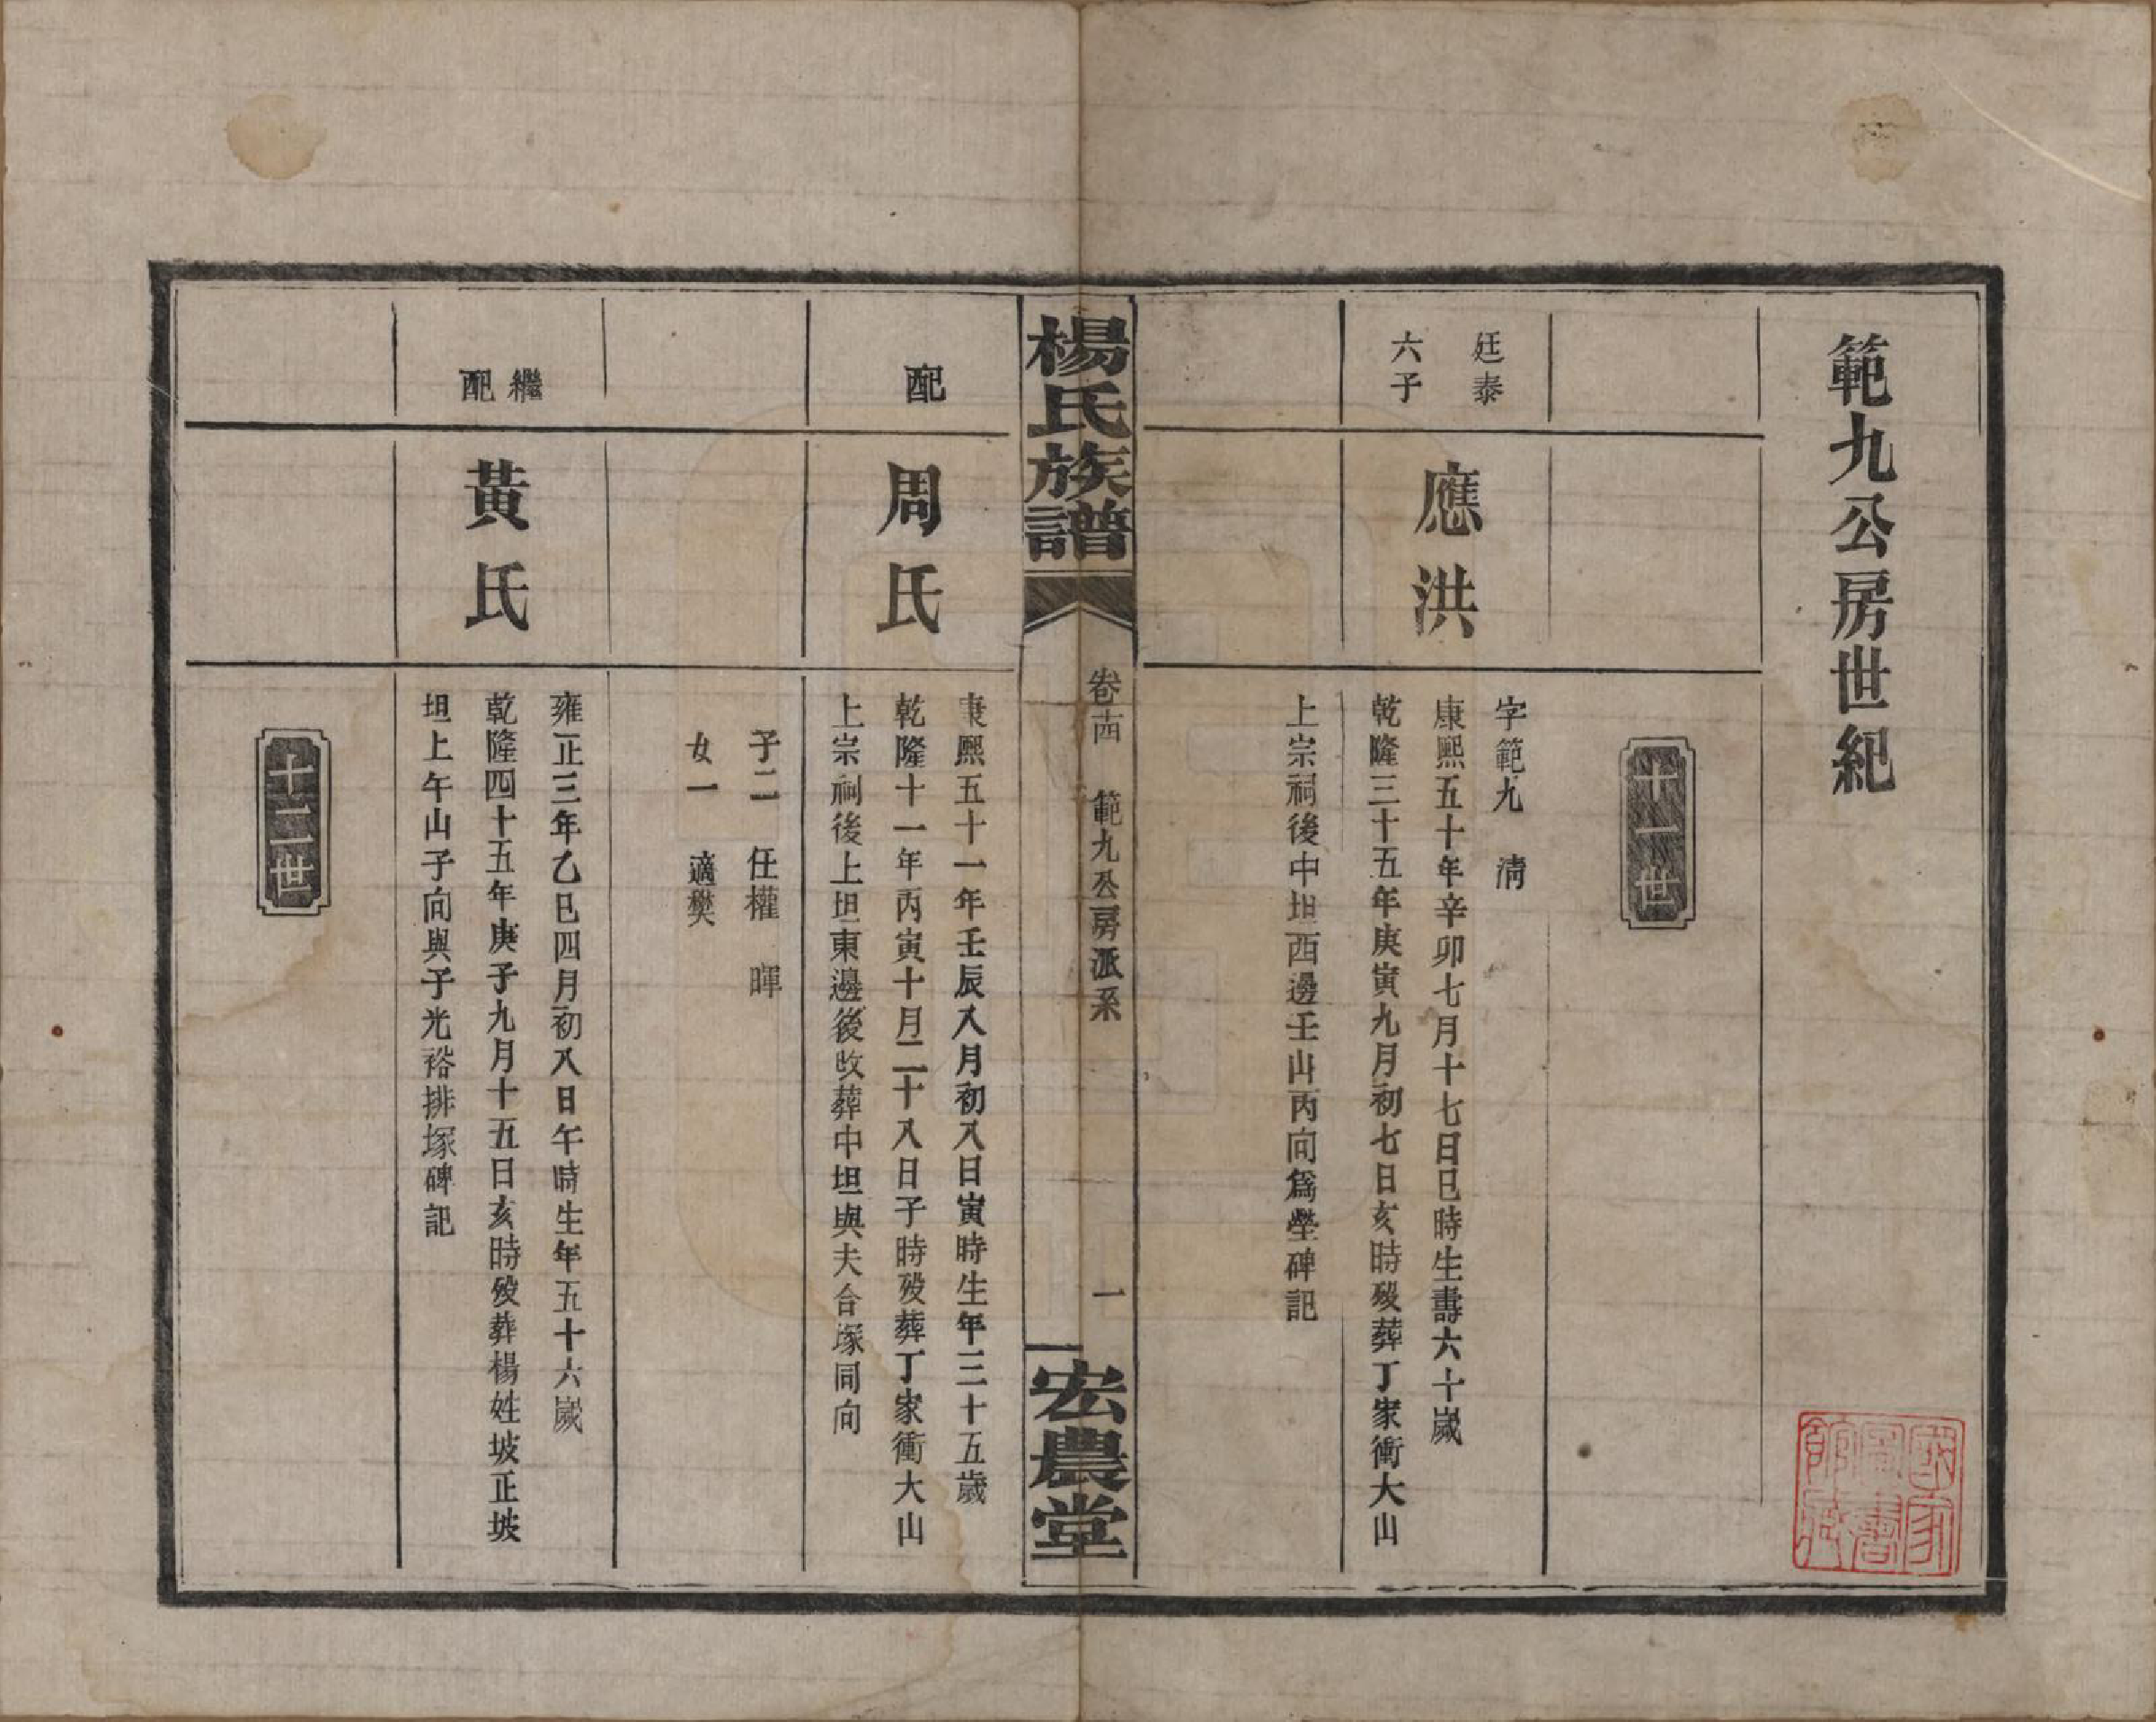 範九公房世紀
十一世
廷泰
六子
應洪
字範九　清
康熙五十年辛卯七月十七日巳時生壽六十歲
乾隆三十五年庚寅九月初七日亥時歿葬丁家衝大山
上宗祠後中坦西邊壬山丙向爲塋碑記
楊氏族譜
卷十四　範九公房派系
一
宏農堂
配
周氏
康熙五十一年壬辰八月初八日寅時生年三十五歲
乾隆十一年丙寅十月二十八日子時歿葬丁家衝大山
上宗祠後上坦東邊後改葬中坦與夫合塚同向
子二　任權　暉
女一　適樊
繼
配
黃氏
雍正三年乙巳四月初八日午時生年五十六歲
乾隆四十五年庚子九月十五日亥時歿葬楊姓坡正坡
坦上午山子向與子光裕排塚碑記
十二世
國家
圖書
館藏